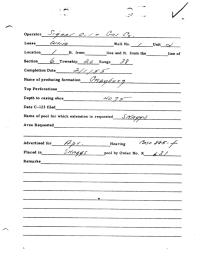 Operator Signal Oil & Gas Co.
Lease Well No. 1 Unit
Location ft. from line and ft. from the line of
Section 6 Township 20 Range 38
Completion Date
Name of producing formation
Top Perforations
Depth to casing shoe 4035
Date C-123 filed
Name of pool for which extension is requested Skaggs
Area Requested
Advertised for Apr. Hearing Case
Placed in Skaggs pool by Order No. R
Remarks